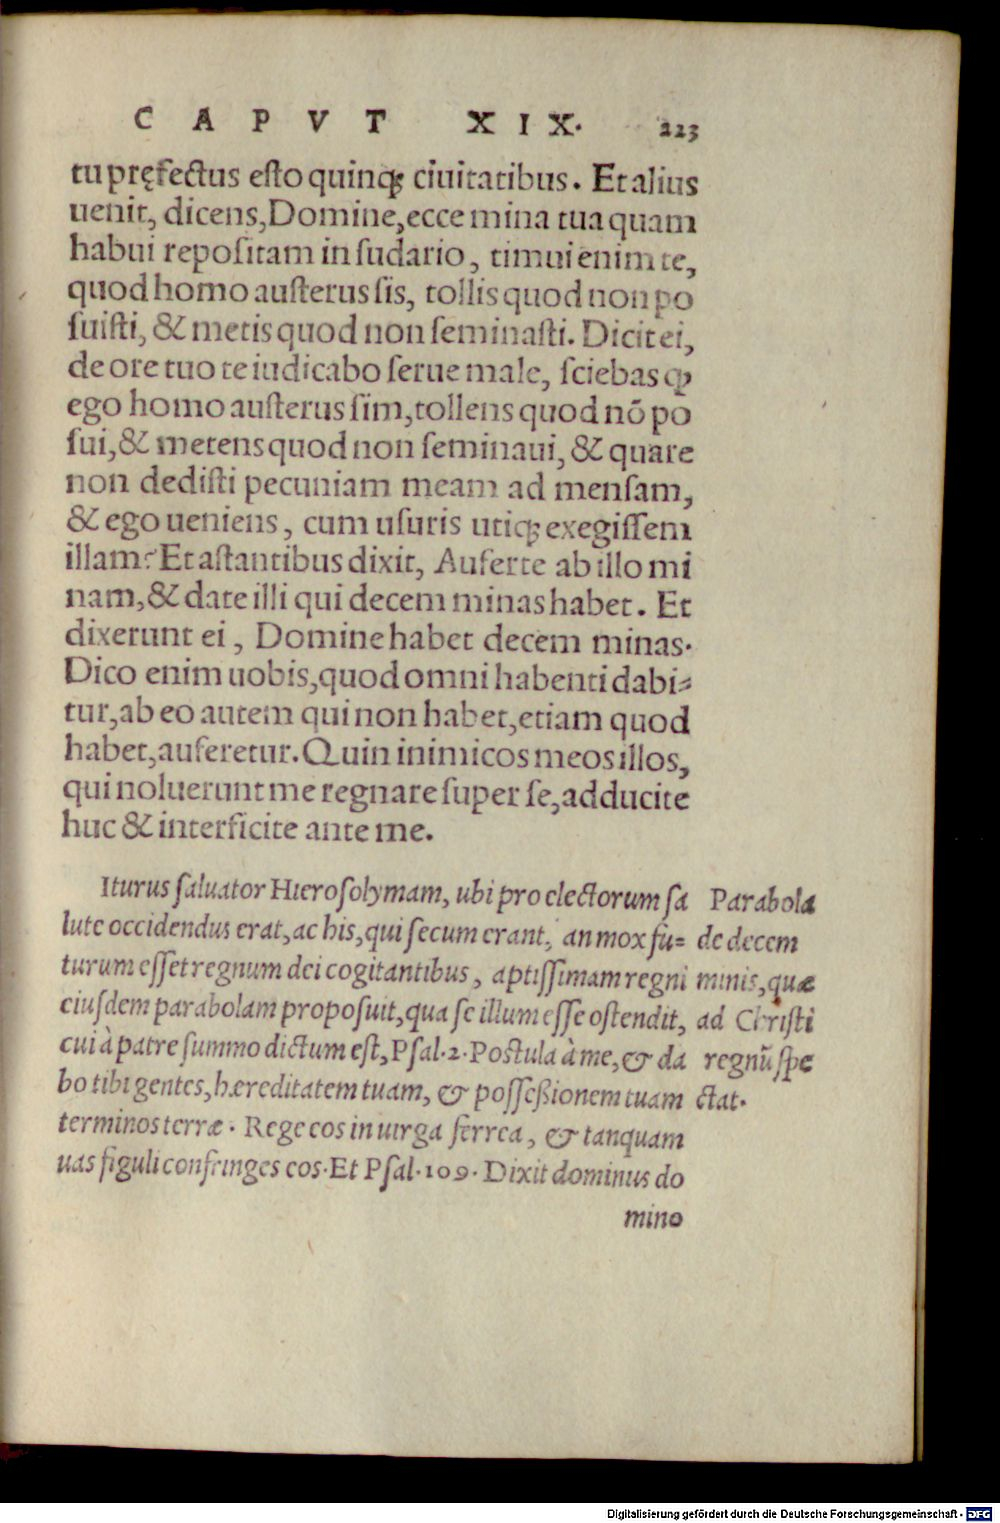 CAPVT XIX. 223
tu pręfectus esto quinqꝫ ciuitatibus. Et alius
uenit, dicens, Domine, ecce mina tua quam
habui repositam in sudario, timui enim te,
quod homo austerus sis, tollis quod non po
suisti, & metis quod non seminasti. Dicit ei,
de ore tuo te iudicabo serue male, sciebas ꝙ
ego homo austerus sim, tollens quod nō po
sui, & metens quod non seminaui, & quare
non dedisti pecuniam meam ad mensam,
& ego ueniens, cum usuris utiqꝫ exegissem
illam? Et astantibus dixit, Auferte ab illo mi
nam, & date illi qui decem minas habet. Et
dixerunt ei, Domine habet decem minas.
Dico enim uobis, quod omni habenti dabi-
tur, ab eo autem qui non habet, etiam quod
habet, auferetur. Quin inimicos meos illos,
qui noluerunt me regnare super se, adducite
huc & interficite ante me.
Iturus saluator Hierosolymam, ubi pro electorum sa
lute occidendus erat, ac his, qui secum erant, an mox fu-
turum esset regnum dei cogitantibus, aptissimam regni
eiusdem parabolam proposuit, qua se illum esse ostendit,
cui à patre summo dictum est, Psal. 2. Postula à me, & da
bo tibi gentes, hæreditatem tuam, & possessionem tuam
terminos terræ. Rege eos in uirga ferrea, & tanquam
uas figuli confringes eos. Et Psal. 109. Dixit dominus do
mino
Parabola
de decem
minis, quæ
ad Christi
regnū spe
ctat.
Digitalisierung gefördert durch die Deutsche Forschungsgemeinschaft - DFG